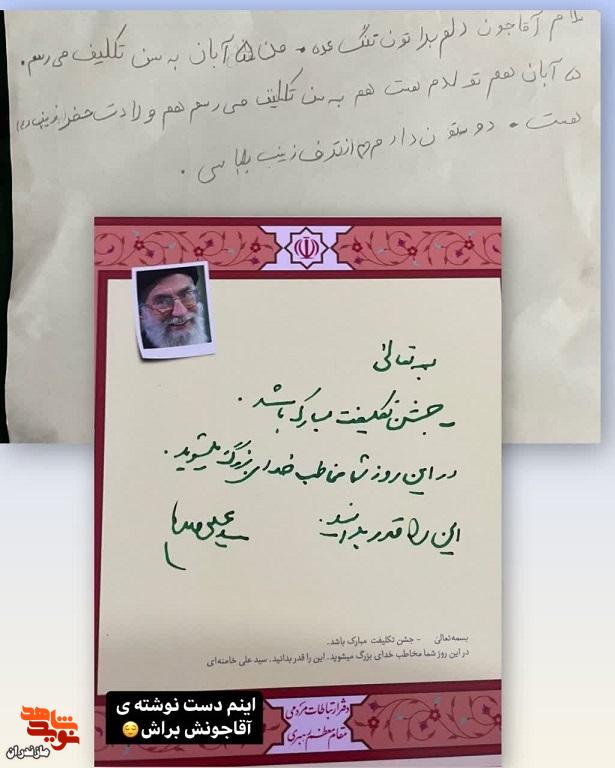 سلام آقاجون دلم براتون تنگ شده. من ۵ آبان به سن تکلیف می‌رسم.
۵ آبان هم تولدم هست هم به سن تکلیف می‌رسم هم ولادت حضرت زینب (س)
هست. دوستون دارم از تَرَف زینب
بسمه تعالی
- جشن تکلیفت مبارک باشد.
در این روز شما مخاطب خدای بزرگ میشوید.
این را قدر بدانید.
سید علی خامنه‌ای
بسمه‌تعالی - جشن تکلیفت مبارک باشد.
در این روز شما مخاطب خدای بزرگ میشوید. این را قدر بدانید. سید علی خامنه‌ای
دفتر ارتباطات مردمی
مقام معظم رهبری
اینم دست نوشته ی
آقاجونش براش😌
نوید شاهد
مازندران